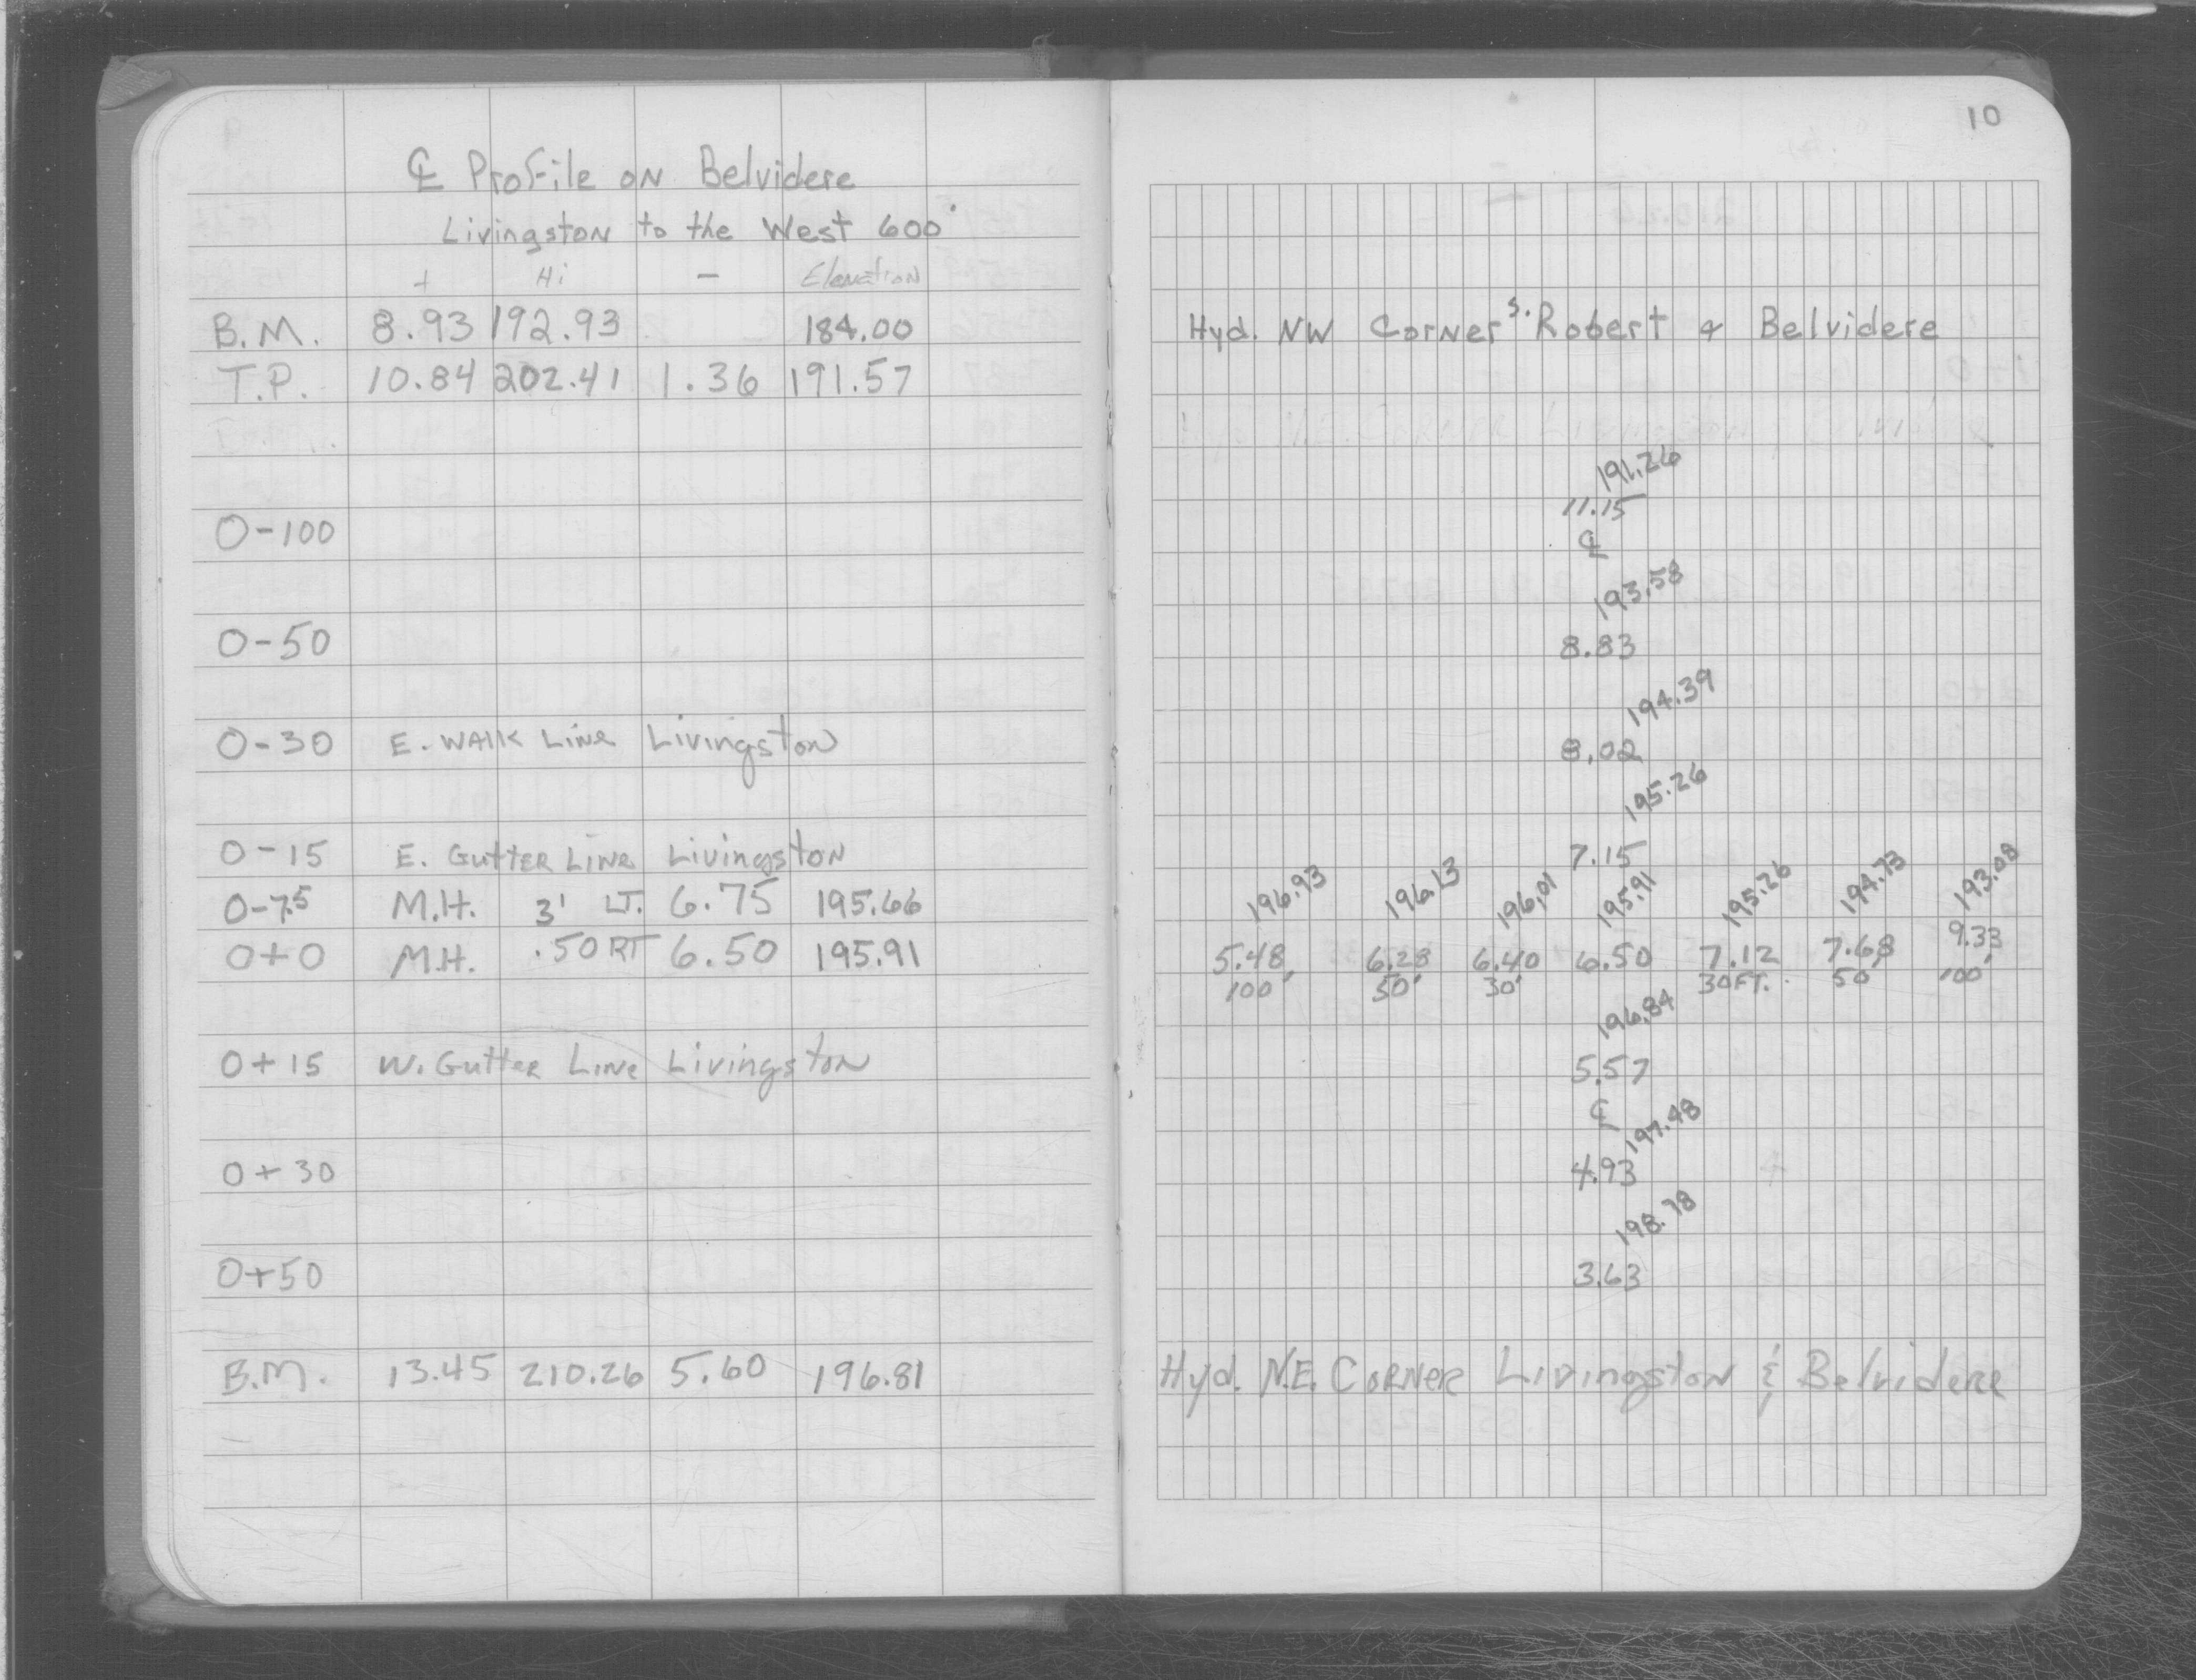 10
℄ Profile on Belvidere
Livingston to the West 600'
+ Hi − Elevation
B.M. 8.93 192.93 184.00 Hyd. NW Corner S. Robert & Belvidere
T.P. 10.84 202.41 1.36 191.57
N.E. Corner Livingston & Belvidere
191.26
0-100 11.15
℄
193.58
0-50 8.83
194.39
0-30 E. Walk Line Livingston 8.02
195.26
0-15 E. Gutter Line Livingston 7.15
196.93 196.13 196.01 195.91 195.26 194.73 193.08
0-7.5 M.H. 3' LT. 6.75 195.66
0+0 M.H. .50 RT 6.50 195.91 5.48 6.28 6.40 6.50 7.12 7.68 9.33
100' 50' 30' 30FT. 50' 100'
196.84
0+15 W. Gutter Line Livingston 5.57
℄
197.48
0+30 4.93
198.78
0+50 3.63
B.M. 13.45 210.26 5.60 196.81 Hyd. N.E. Corner Livingston & Belvidere